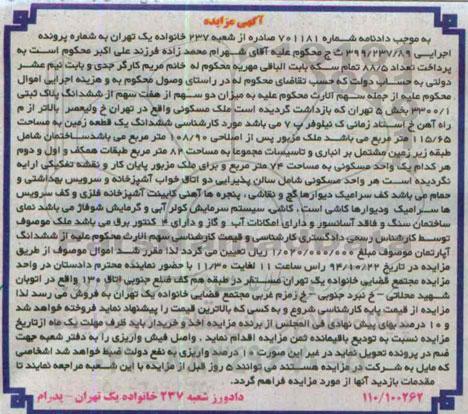 آگهی مزایده
به موجب دادنامه شماره ۷۰۱۱۸۱ صادره از شعبه ۲۳۷ خانواده یک تهران به شماره پرونده
اجرایی ۳۹۹/۲۳۷/۸۹ ج ح محکوم علیه آقای شهرام محمد زاده فرزند علی اکبر محکوم است به
پرداخت تعداد ۸۸/۵ تمام سکه بابت الباقی مهریه محکوم له خانم مریم کارگر جدی و بابت نیم عشر
دولتی به حساب دولت که حسب تقاضای محکوم له در راستای وصول محکوم به و هزینه اجرایی اموال
محکوم علیه از جمله سهم الارث محکوم علیه به میزان دو سهم از هفت سهم از ششدانگ پلاک ثبتی
۳۳۰۰/۱ بخش ۵ تهران که بازداشت گردیده است ملک مسکونی واقع در تهران خ ولیعصر بالاتر از م
راه آهن خ استاد زمانی ک نیلوفر پ ۷ می باشد مورد کارشناسی ششدانگ یک قطعه زمین به مساحت
۱۱۵/۶۵ متر مربع می باشد ملک مزبور پس از اصلاحی ۱۰۸/۹۰ متر مربع می باشد ساختمان شامل
طبقه زیر زمین مشتمل بر انباری و تاسیسات مجموعا به مساحت ۸۲ متر مربع طبقات همکف و اول و دوم
هر کدام یک واحد مسکونی به مساحت ۷۴ متر مربع و برای ملک مزبور پایان کار و نقشه تفکیکی ارایه
نگردیده است هر واحد مسکونی شامل سالن پذیرایی دو اتاق خواب آشپزخانه و سرویس بهداشتی و
حمام می باشد کف سرامیک دیوارها گچ و نقاشی ، پنجره ها آهنی کابینت آشپزخانه فلزی و کف سرویس
ها سرامیک ودیوارها کاشی است ، کاشی. سیستم سرمایش کولر آبی و گرمایش شوفاژ می باشد نمای
ساختمان سنگ و فاقد آسانسور و دارای امکانات آب و گاز و دارای ۴ کنتور برق می باشد ملک موصوف
توسط کارشناس رسمی دادگستری کارشناسی و قیمت کارشناسی سهم الارث محکوم علیه از ششدانگ
آپارتمان موصوف مبلغ ۱/۰۲۰/۰۰۰/۰۰۰ ریال تعیین می گردد لذا مقرر شد اموال موصوف از طریق
مزایده در تاریخ ۹۴/۱۰/۲۲ راس ساعت ۱۱ لغایت ۱۱/۳۰ با حضور نماینده محترم دادستان در واحد
مزایده مجتمع قضایی خانواده یک تهران مستقر در طبقه هم کف ضلع جنوبی اتاق ۱۳۰ واقع در اتوبان
شهید محلاتی – خ نبرد جنوبی – خ زمزم غربی مجتمع قضایی خانواده یک تهران به فروش می رسد لذا
مزایده از قیمت پایه کارشناسی شروع و به کسی که بالاترین قیمت را پیشنهاد نماید فروخته خواهد شد
و ۱۰ درصد بهای پیش نهادی فی المجلس از برنده مزایده اخذ و خریدار باید ظرف مهلت یک ماه ازتاریخ
مزایده نسبت به تودیع باقیمانده ثمن مزایده اقدام نماید . واصل فیش واریزی را به دفتر شعبه جهت
ضم در پرونده تحویل نماید در غیر این صورت ۱۰ درصد واریزی به نفع دولت ضبط خواهد شد اشخاصی
که مایل به شرکت در مزایده هستند می توانند ۵ روز قبل از مزایده با این شعبه مراجعه نمایند تا
مقدمات بازدید آنها از مورد مزایده فراهم گردد.
۱۱۰/۱۰۰۲۶۲ دادورز شعبه ۲۳۷ خانواده یک تهران – پدرام